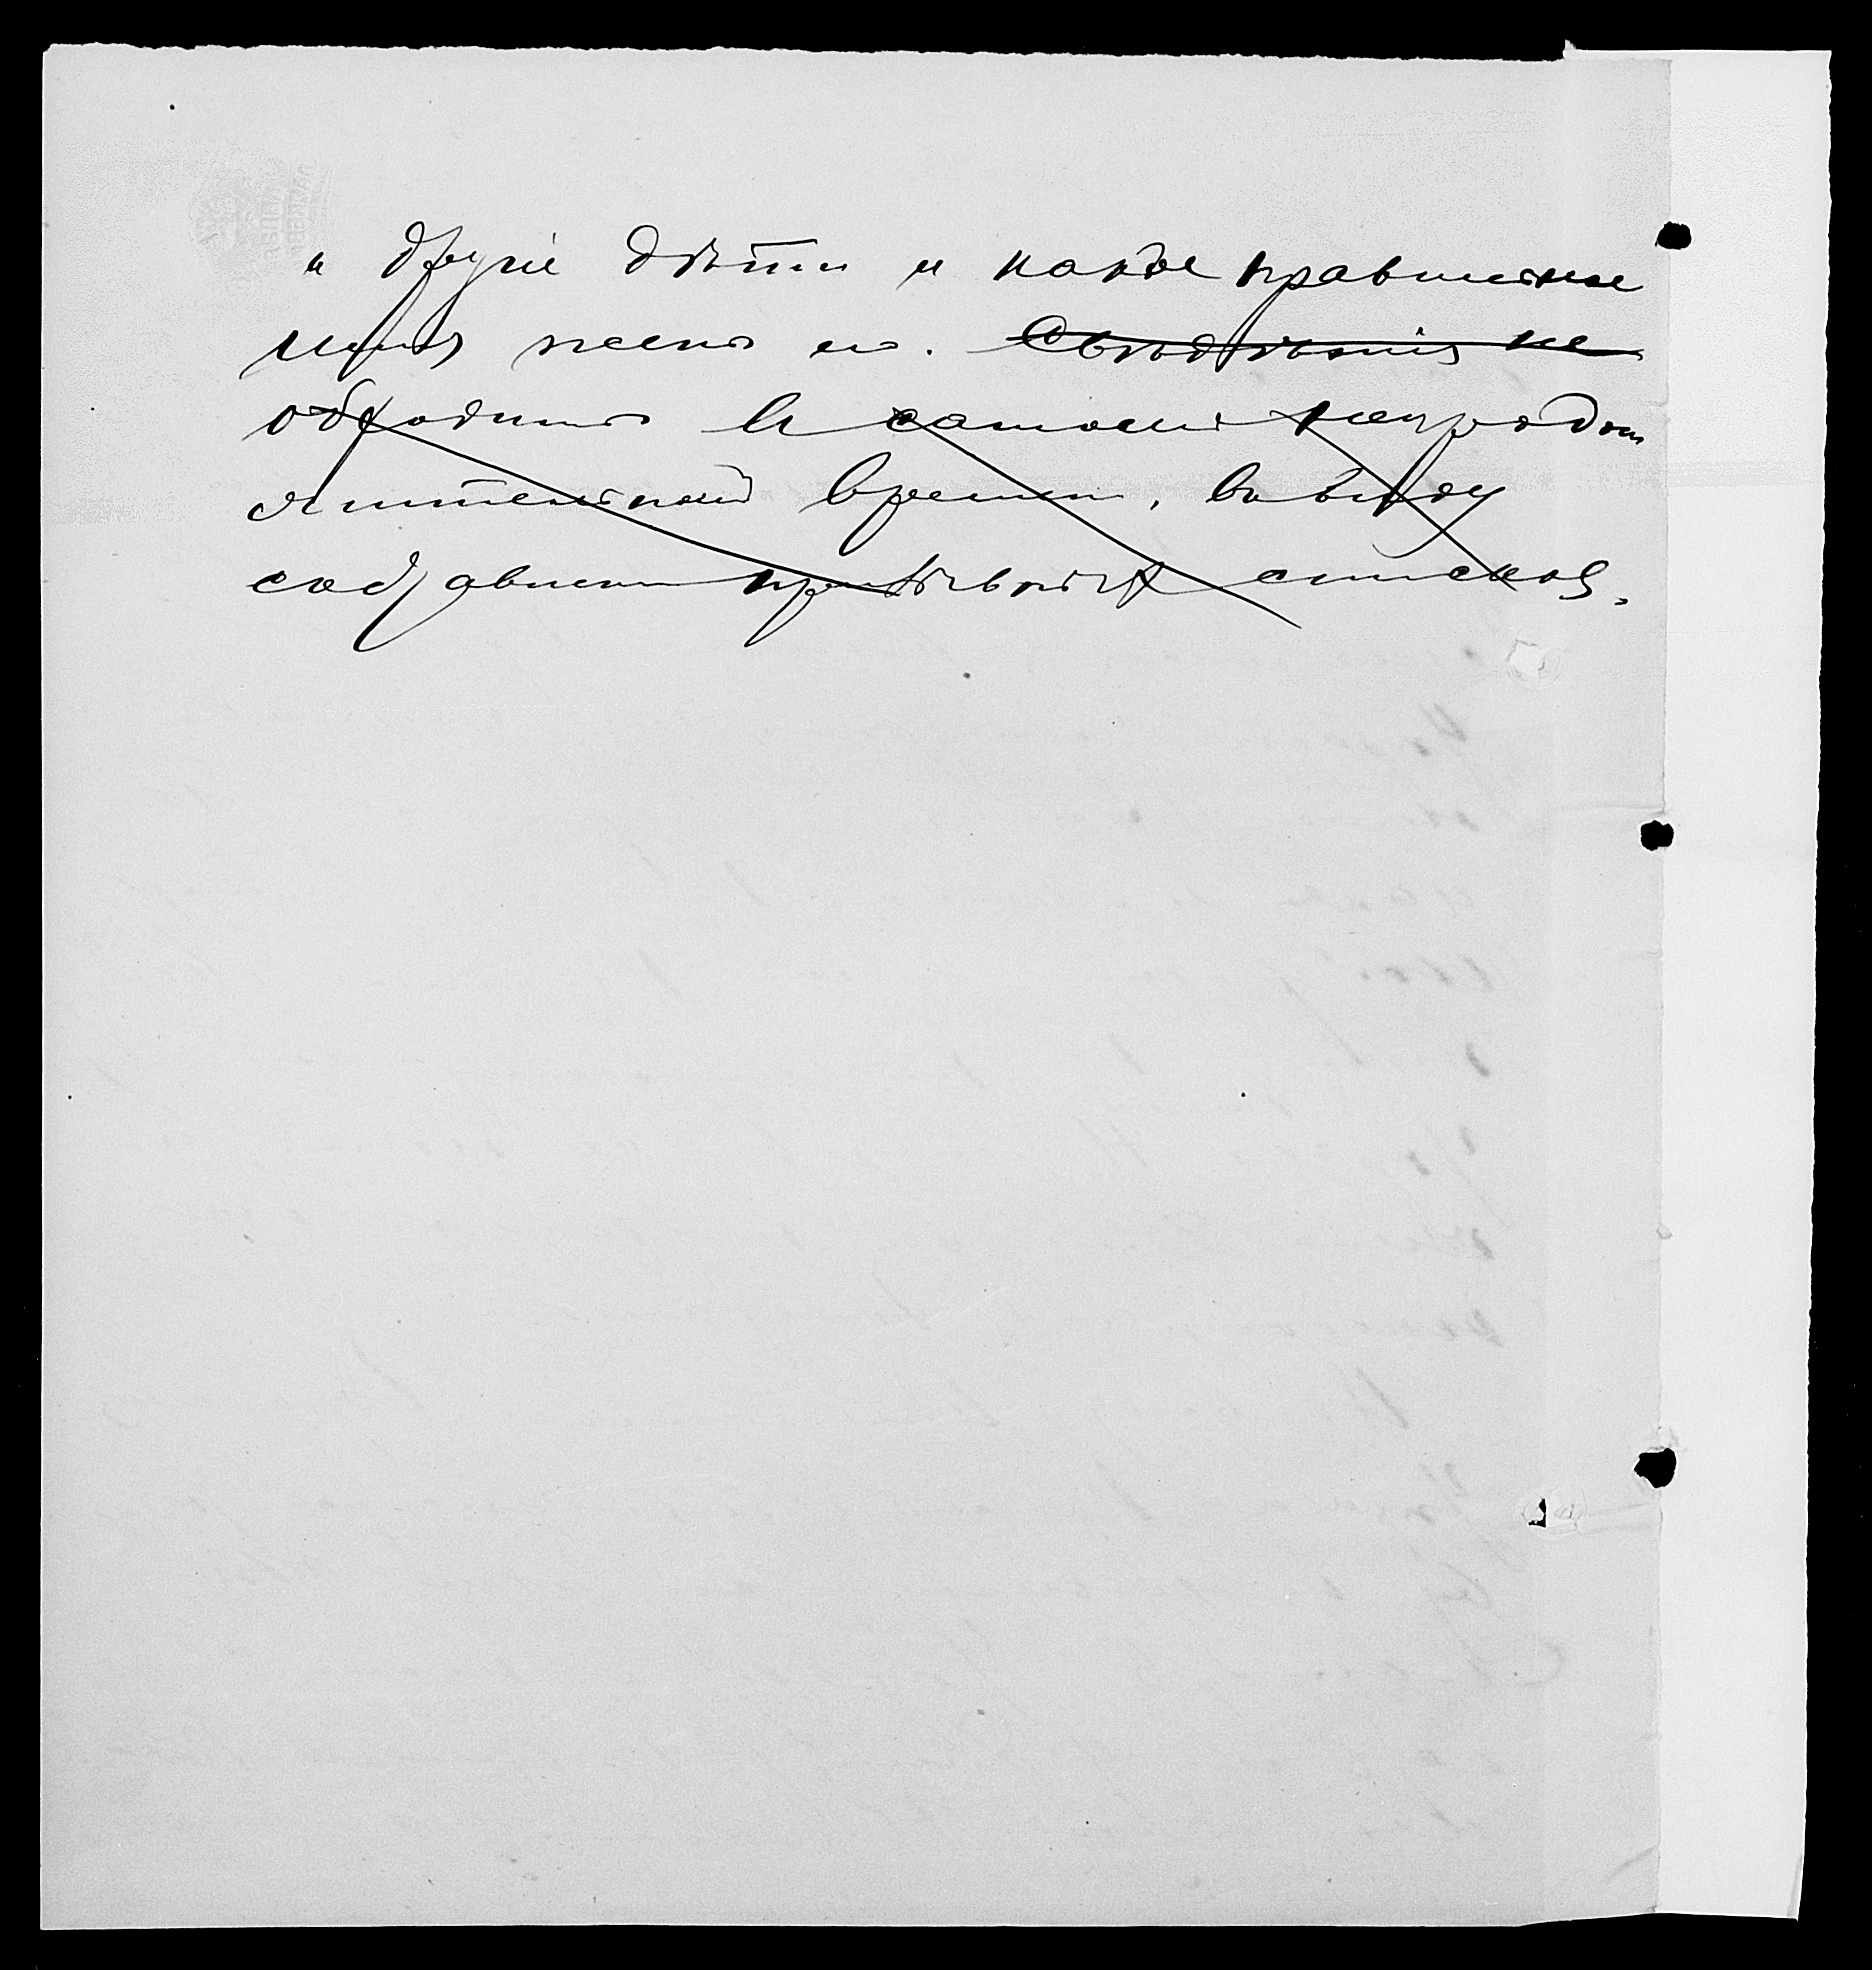 и другіе дѣти и какое правильное
имя жены его. Свѣдѣнія не
обходимы въ самомъ непродол
жительномъ времени, въ виду
составленія призывныхъ списковъ.